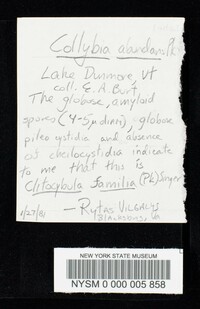 Collybia abundans Pk.
Lake Dunmore, Vt
coll. E. A. Burt,
The globose, amyloid
spores (4-5µ diam), globose
pileocystidia and absence
of cheilocystidia indicate
to me that this is
Clitocybula familia (Pk) Singer
— Rytas VILGALYS
Blacksburg, Va
1/27/81
NEW YORK STATE MUSEUM
NYSM 0 000 005 858